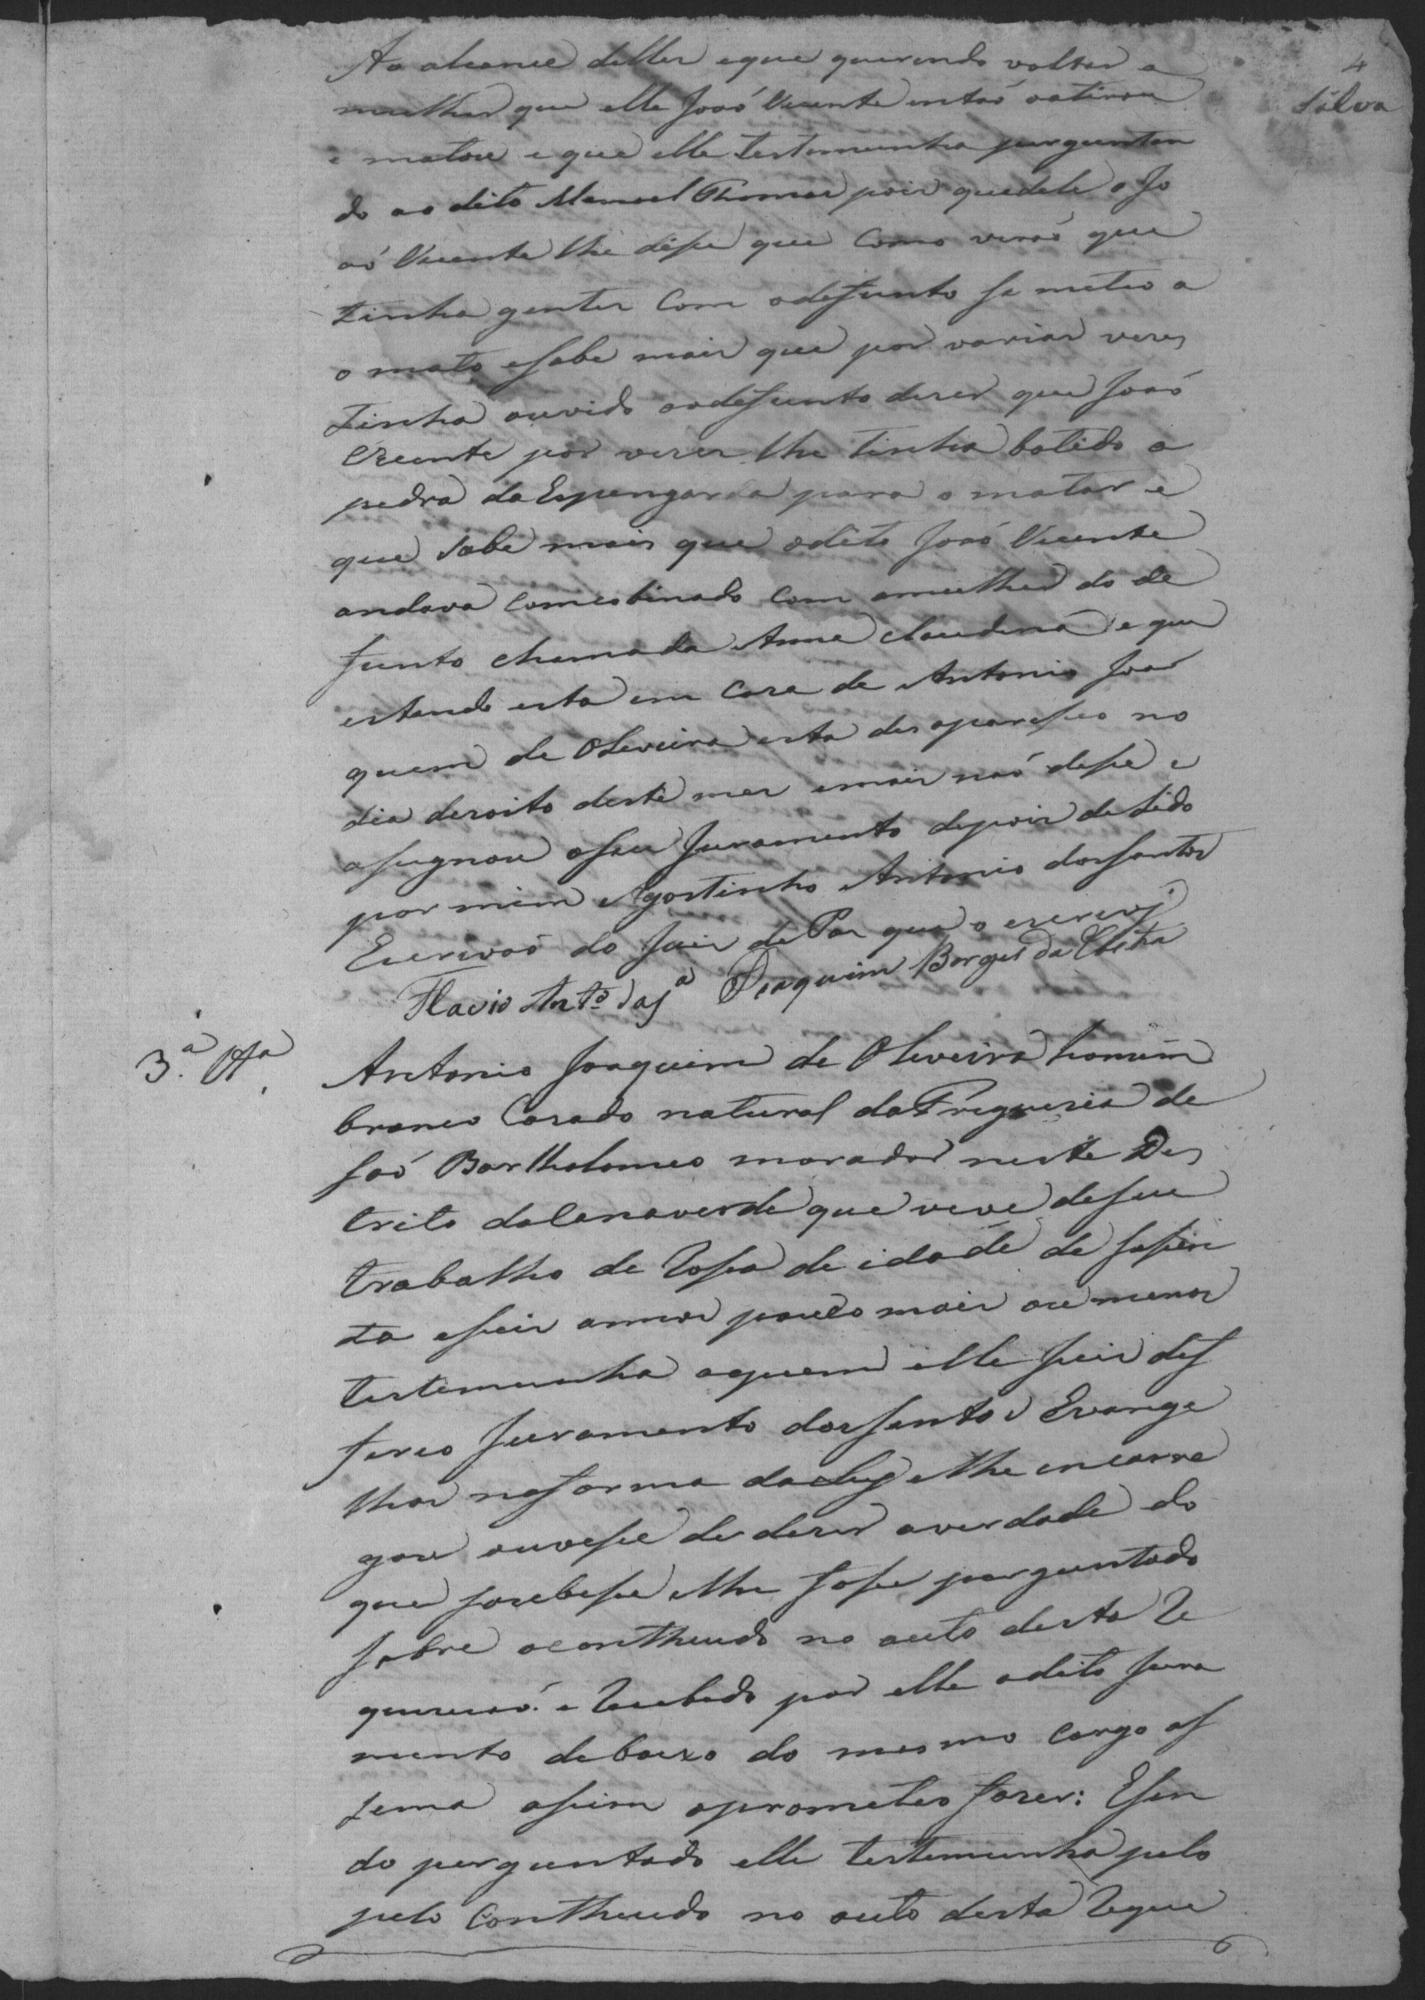 4
Silva
Ao alcance delles eque querendo voltar a
mulher que elle Joaõ Vicente entaõ o atirou
e matou e que elle testemunha perguntan
do ao dito Manoel Thomas pois quedele o Jo
aõ Vicente lhe disse que como viraõ que
tinha gentes com odefunto se meteo a
o mato esabe mais que por varias veses
tinha ouvido aodefunto diser que Joaõ
Vicente por veses lhe tinha batido a
pedra da Espengarda para o matar e
que sabe mais que odito Joaõ Vicente
andava comcobinado com amulher do de
funto chamada Anna Claudina e que
estando esta em casa de Antonio Joa
quem de Oliveira esta desapareseo no
dia desoito deste mes emais naõ disse e
asignou oseu Juramento depois de lido
por mim Agostinho Antonio dosSantos
Escrivaõ do Juis de Pas que o escrevj
Flavio Anto. da Sa Joaquim Borges da Costa
3.a tta.
Antonio Joaquim de Oliveira homem
branco Casado natural daFreguesia de
Saõ Bartholomeo morador neste Des
trito daCanaverde que vive deseu
trabalho de Rosa de idade de sesen
ta eseis annos pouco mais ou menos
testemunha aquem elle Juis def
ferio Juramento dosSantos Evange
lhos naforma daLey elhe encarre
gou ouvesse de diser averdade do
que soubesse elhe fosse perguntado
sobre ocontheudo no auto desta Re
querisaõ. e Recebido por elle odito Jura
mento debaixo do mesmo cargo as
sema asim oprometeo faser: Esen
do perguntado elle testemunha pelo
pelo Contheudo no auto desta Reque